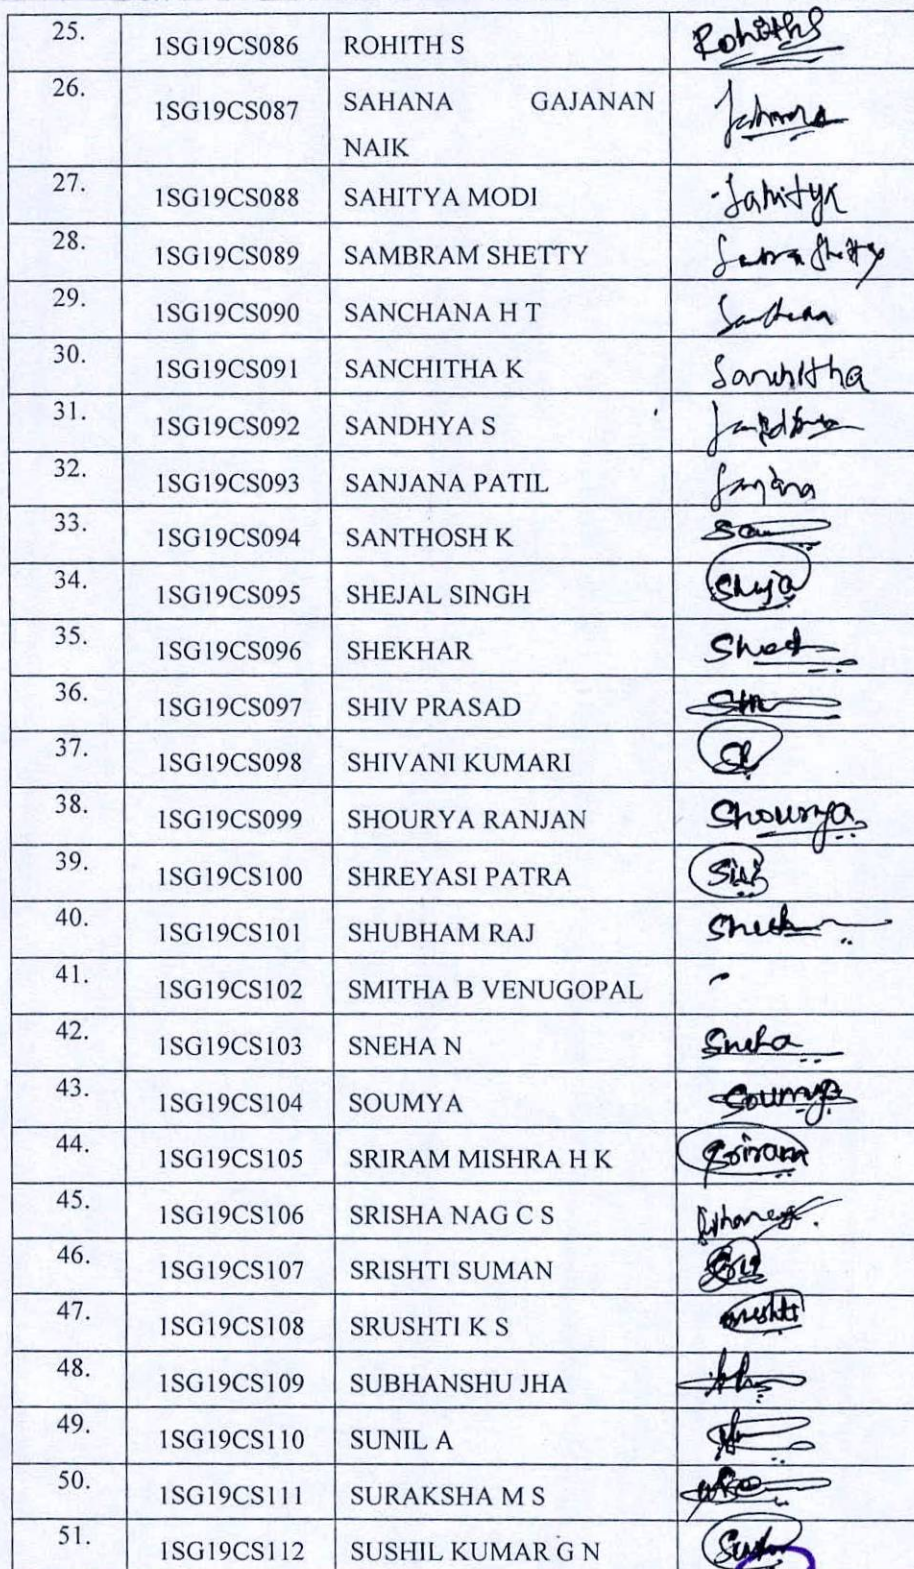 25. 1SG19CS086 ROHITH S Rohith S
26. 1SG19CS087 SAHANA GAJANAN
NAIK Sahana
27. 1SG19CS088 SAHITYA MODI Sahitya
28. 1SG19CS089 SAMBRAM SHETTY
29. 1SG19CS090 SANCHANA H T
30. 1SG19CS091 SANCHITHA K Sanchitha
31. 1SG19CS092 SANDHYA S
32. 1SG19CS093 SANJANA PATIL Sanjana
33. 1SG19CS094 SANTHOSH K
34. 1SG19CS095 SHEJAL SINGH
35. 1SG19CS096 SHEKHAR
36. 1SG19CS097 SHIV PRASAD
37. 1SG19CS098 SHIVANI KUMARI
38. 1SG19CS099 SHOURYA RANJAN Shourya
39. 1SG19CS100 SHREYASI PATRA
40. 1SG19CS101 SHUBHAM RAJ
41. 1SG19CS102 SMITHA B VENUGOPAL
42. 1SG19CS103 SNEHA N Sneha
43. 1SG19CS104 SOUMYA Soumya
44. 1SG19CS105 SRIRAM MISHRA H K Sriram
45. 1SG19CS106 SRISHA NAG C S
46. 1SG19CS107 SRISHTI SUMAN
47. 1SG19CS108 SRUSHTI K S
48. 1SG19CS109 SUBHANSHU JHA
49. 1SG19CS110 SUNIL A
50. 1SG19CS111 SURAKSHA M S
51. 1SG19CS112 SUSHIL KUMAR G N